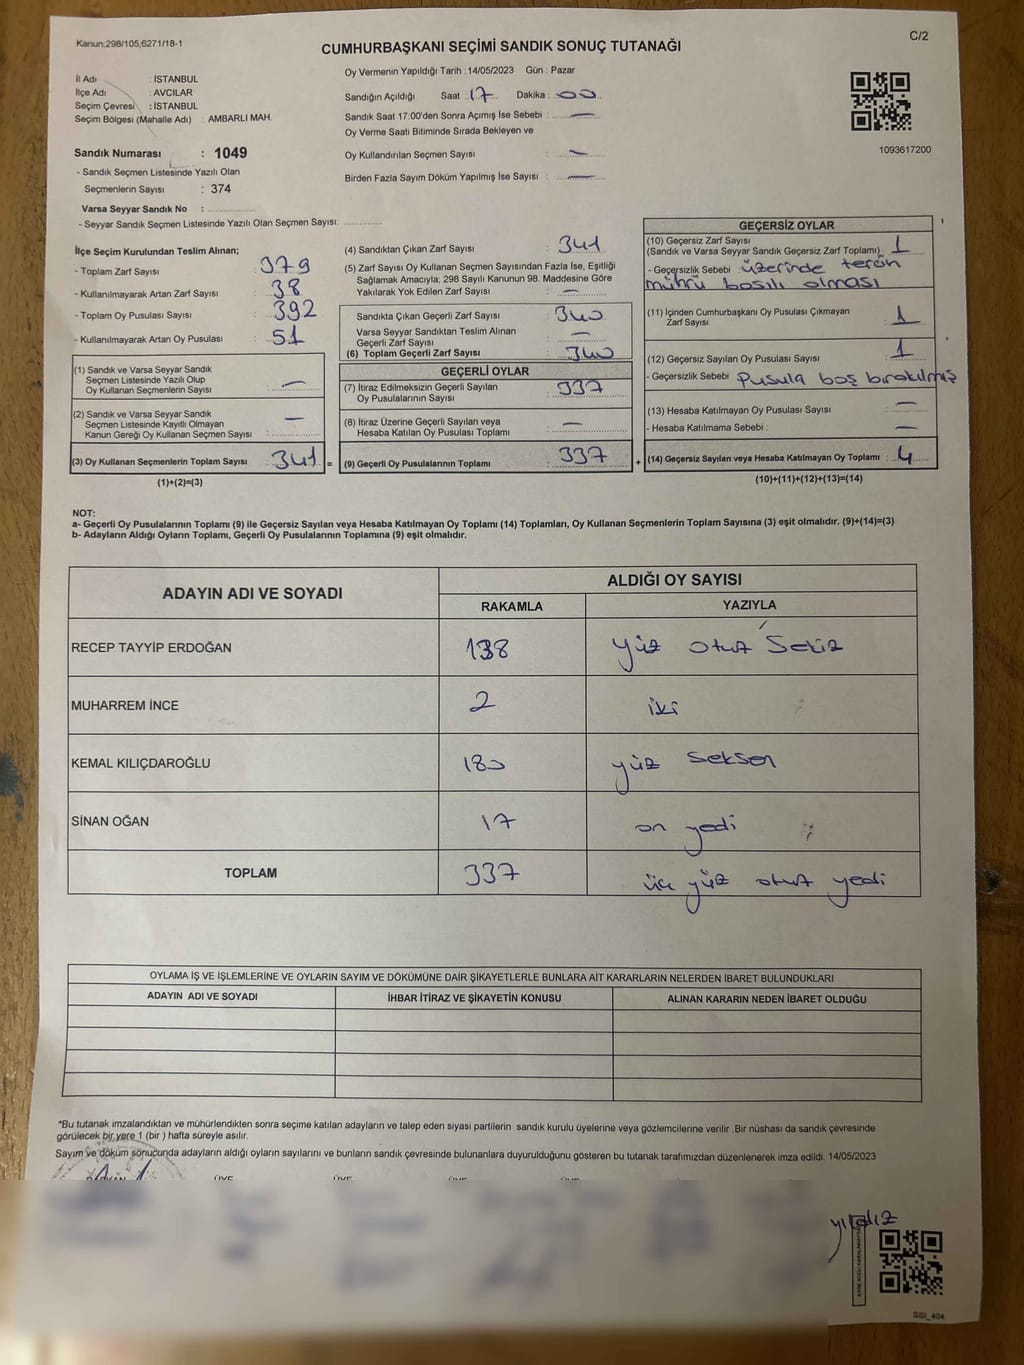 Kanun;298/105,6271/18-1
C/2
CUMHURBAŞKANI SEÇİMİ SANDIK SONUÇ TUTANAĞI
İl Adı : İSTANBUL
İlçe Adı : AVCILAR
Seçim Çevresi : İSTANBUL
Seçim Bölgesi (Mahalle Adı) : AMBARLI MAH.
Sandık Numarası : 1049
- Sandık Seçmen Listesinde Yazılı Olan
Seçmenlerin Sayısı : 374
Varsa Seyyar Sandık No :
- Seyyar Sandık Seçmen Listesinde Yazılı Olan Seçmen Sayısı:
Oy Vermenin Yapıldığı Tarih : 14/05/2023 Gün : Pazar
Sandığın Açıldığı Saat : 17 Dakika : 00
Sandık Saat 17:00'den Sonra Açımış İse Sebebi : —
Oy Verme Saati Bitiminde Sırada Bekleyen ve
Oy Kullandırılan Seçmen Sayısı : —
Birden Fazla Sayım Döküm Yapılmış İse Sayısı : —
1093617200
İlçe Seçim Kurulundan Teslim Alınan;
- Toplam Zarf Sayısı : 379
- Kullanılmayarak Artan Zarf Sayısı : 38
- Toplam Oy Pusulası Sayısı : 392
- Kullanılmayarak Artan Oy Pusulası : 51
(1) Sandık ve Varsa Seyyar Sandık
Seçmen Listesinde Yazılı Olup
Oy Kullanan Seçmenlerin Sayısı : —
(2) Sandık ve Varsa Seyyar Sandık
Seçmen Listesinde Kayıtlı Olmayan
Kanun Gereği Oy Kullanan Seçmen Sayısı : —
(3) Oy Kullanan Seçmenlerin Toplam Sayısı : 341 =
(1)+(2)=(3)
(4) Sandıktan Çıkan Zarf Sayısı : 341
(5) Zarf Sayısı Oy Kullanan Seçmen Sayısından Fazla İse, Eşitliği
Sağlamak Amacıyla, 298 Sayılı Kanunun 98. Maddesine Göre
Yakılarak Yok Edilen Zarf Sayısı : —
Sandıkta Çıkan Geçerli Zarf Sayısı : 340
Varsa Seyyar Sandıktan Teslim Alınan
Geçerli Zarf Sayısı : —
(6) Toplam Geçerli Zarf Sayısı : 340
GEÇERLİ OYLAR
(7) İtiraz Edilmeksizin Geçerli Sayılan
Oy Pusulalarının Sayısı : 337
(8) İtiraz Üzerine Geçerli Sayılan veya
Hesaba Katılan Oy Pusulası Toplamı : —
(9) Geçerli Oy Pusulalarının Toplamı : 337 +
GEÇERSİZ OYLAR
(10) Geçersiz Zarf Sayısı
(Sandık ve Varsa Seyyar Sandık Geçersiz Zarf Toplamı) : 1
- Geçersizlik Sebebi : üzerinde tercih
mührü basılı olması
(11) İçinden Cumhurbaşkanı Oy Pusulası Çıkmayan
Zarf Sayısı : 1
(12) Geçersiz Sayılan Oy Pusulası Sayısı : 1
- Geçersizlik Sebebi : Pusula boş bırakılmış
(13) Hesaba Katılmayan Oy Pusulası Sayısı : —
- Hesaba Katılmama Sebebi : —
(14) Geçersiz Sayılan veya Hesaba Katılmayan Oy Toplamı : 4
(10)+(11)+(12)+(13)=(14)
NOT:
a- Geçerli Oy Pusulalarının Toplamı (9) ile Geçersiz Sayılan veya Hesaba Katılmayan Oy Toplamı (14) Toplamları, Oy Kullanan Seçmenlerin Toplam Sayısına (3) eşit olmalıdır. (9)+(14)=(3)
b- Adayların Aldığı Oyların Toplamı, Geçerli Oy Pusulalarının Toplamına (9) eşit olmalıdır.
ADAYIN ADI VE SOYADI
ALDIĞI OY SAYISI
RAKAMLA YAZIYLA
RECEP TAYYİP ERDOĞAN 138 yüz otuz Sekiz
MUHARREM İNCE 2 iki
KEMAL KILIÇDAROĞLU 180 yüz seksen
SİNAN OĞAN 17 on yedi
TOPLAM 337 üç yüz otuz yedi
OYLAMA İŞ VE İŞLEMLERİNE VE OYLARIN SAYIM VE DÖKÜMÜNE DAİR ŞİKAYETLERLE BUNLARA AİT KARARLARIN NELERDEN İBARET BULUNDUKLARI
ADAYIN ADI VE SOYADI İHBAR İTİRAZ VE ŞİKAYETİN KONUSU ALINAN KARARIN NEDEN İBARET OLDUĞU
*Bu tutanak imzalandıktan ve mühürlendikten sonra seçime katılan adayların ve talep eden siyasi partilerin sandık kurulu üyelerine veya gözlemcilerine verilir .Bir nüshası da sandık çevresinde
görülecek bir yere 1 (bir ) hafta süreyle asılır.
Sayım ve döküm sonucunda adayların aldığı oyların sayılarını ve bunların sandık çevresinde bulunanlara duyurulduğunu gösteren bu tutanak tarafımızdan düzenlenerek imza edildi. 14/05/2023
ÜYE ÜYE ÜYE ÜYE
yıldız
SSI_404